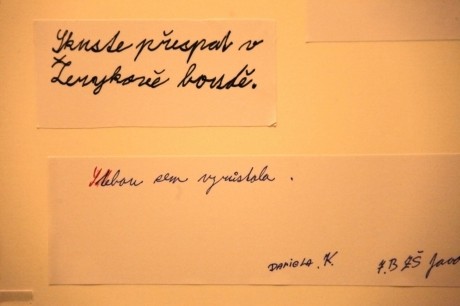 Zkuste přespat v
Žerykově boudě.
S tebou sem vyrůstala.
DANIELA. K.
7.B ZŠ